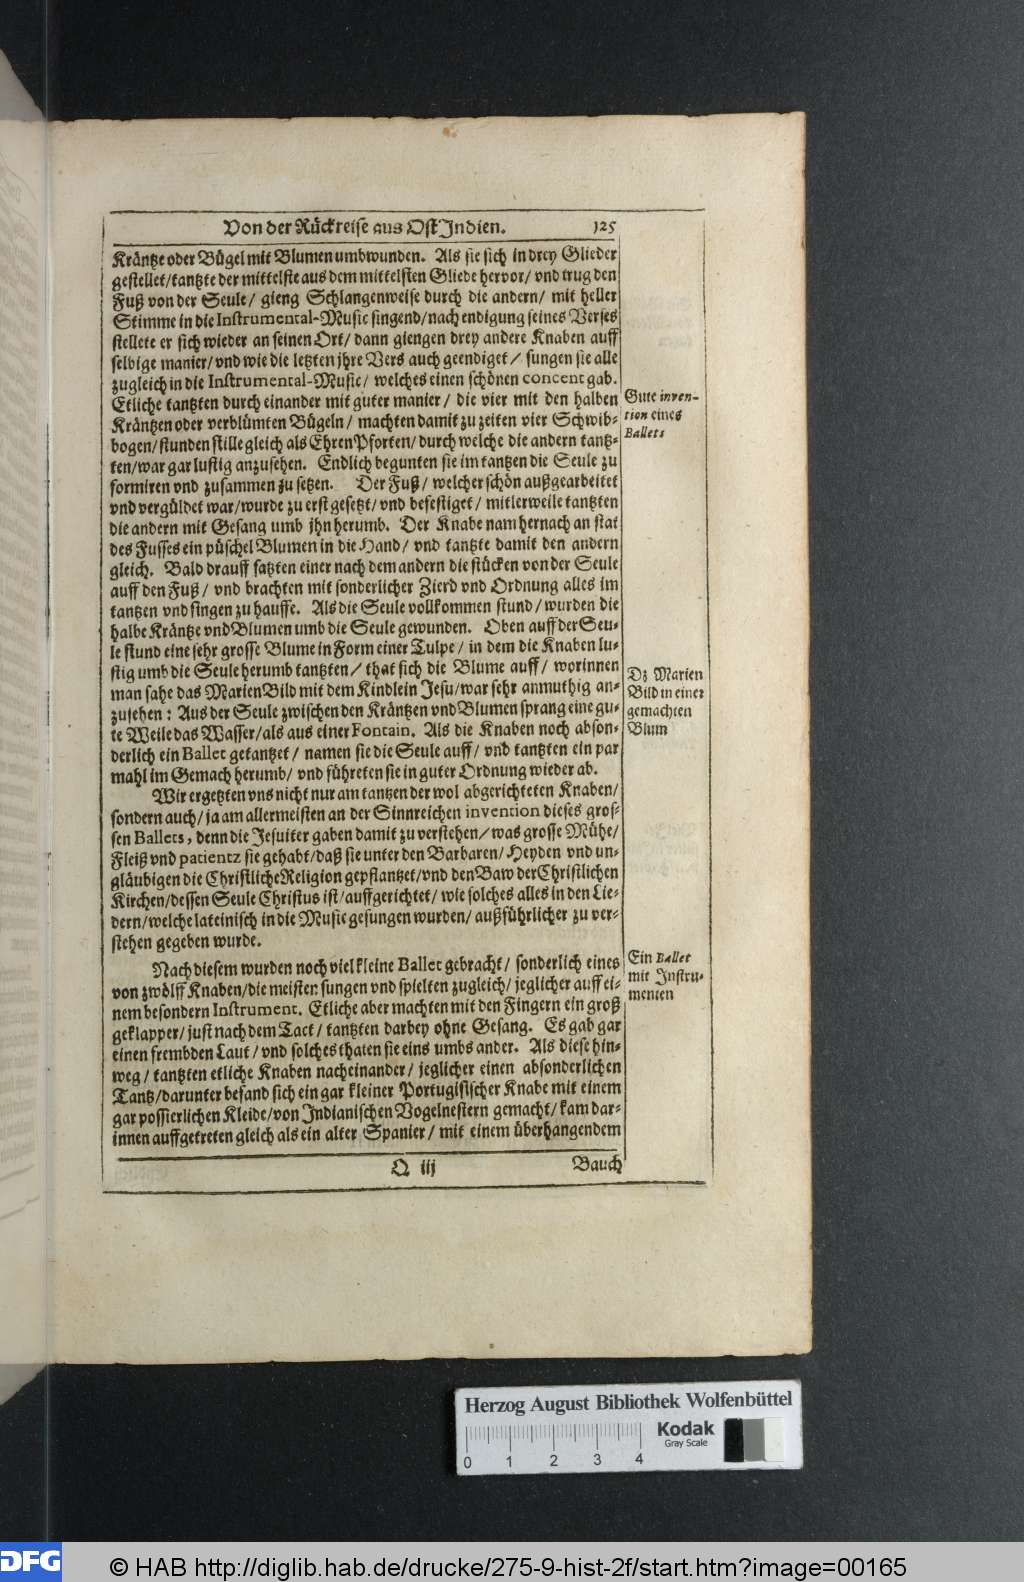 Von der Rückreise aus Ost Indien. 125
Kräntze oder Bügel mit Blumen umbwunden. Als sie sich in drey Glieder
gestellet/ tantzte der mittelste aus dem mittelsten Gliede hervor/ vnd trug den
Fuß von der Seule/ gieng Schlangenweise durch die andern/ mit heller
Stimme in die Instrumental-Music singend/ nach endigung seines Verses
stellete er sich wieder an seinen Ort/ dann giengen drey andere Knaben auff
selbige manier/ vnd wie die letzten jhre Vers auch geendiget/ sungen sie alle
zugleich in die Instrumental-Music/ welches einen schönen concent gab.
Etliche tantzten durch einander mit guter manier/ die vier mit den halben
Kräntzen oder verblümten Bügeln/ machten damit zu zeiten vier Schwib-
bogen/ stunden stille gleich als EhrenPforten/ durch welche die andern tantz-
ten/ war gar lustig anzusehen. Endlich begunten sie im tantzen die Seule zu
formiren vnd zusammen zu setzen. Der Fuß/ welcher schön außgearbeitet
vnd vergüldet war/ wurde zu erst gesetzt/ vnd befestiget/ mitlerweile tantzten
die andern mit Gesang umb jhn herumb. Der Knabe nam hernach an stat
des Fusses ein püschel Blumen in die Hand/ vnd tantzte damit den andern
gleich. Bald drauff satzten einer nach dem andern die stücken von der Seule
auff den Fuß/ vnd brachten mit sonderlicher Zierd vnd Ordnung alles im
tantzen vnd singen zu hauffe. Als die Seule vollkommen stund/ wurden die
halbe Kräntze vnd Blumen umb die Seule gewunden. Oben auff der Seu-
le stund eine sehr grosse Blume in Form einer Tulpe/ in dem die Knaben lu-
stig umb die Seule herumb tantzten/ that sich die Blume auff/ worinnen
man sahe das MarienBild mit dem Kindlein Jesu/ war sehr anmuthig an-
zusehen: Aus der Seule zwischen den Kräntzen vnd Blumen sprang eine gu-
te Weile das Wasser/ als aus einer Fontain. Als die Knaben noch abson-
derlich ein Ballet getantzet/ namen sie die Seule auff/ vnd tantzten ein par
mahl im Gemach herumb/ vnd führeten sie in guter Ordnung wieder ab.
Wir ergetzten vns nicht nur am tantzen der wol abgerichteten Knaben/
sondern auch/ ja am allermeisten an der Sinnreichen invention dieses gros-
sen Ballets, denn die Jesuiter gaben damit zu verstehen/ was grosse Mühe/
Fleiß vnd patientz sie gehabt/ daß sie unter den Barbaren/ Heyden vnd un-
gläubigen die Christliche Religion gepflantzet/ vnd den Baw der Christlichen
Kirchen/ dessen Seule Christus ist/ auffgerichtet/ wie solches alles in den Lie-
dern/ welche lateinisch in die Music gesungen wurden/ außführlicher zu ver-
stehen gegeben wurde.
Nach diesem wurden noch viel kleine Ballet gebracht/ sonderlich eines
von zwölff Knaben/ die meisten sungen vnd spielten zugleich/ jeglicher auff ei-
nem besondern Instrument. Etliche aber machten mit den Fingern ein groß
geklapper/ just nach dem Tact/ tantzten darbey ohne Gesang. Es gab gar
einen frembden Laut/ vnd solches thaten sie eins umbs ander. Als diese hin-
weg/ tantzten etliche Knaben nacheinander/ jeglicher einen absonderlichen
Tantz/ darunter befand sich ein gar kleiner Portugisischer Knabe mit einem
gar possierlichen Kleide/ von Indianischen Vogelnestern gemacht/ kam dar-
innen auffgetreten gleich als ein alter Spanier/ mit einem überhangendem
Q iij Bauch
Gute inven-
tion eines
Ballets
Dz Marien
Bild in einer
gemachten
Blum
Ein Ballet
mit Instru-
menten
Herzog August Bibliothek Wolfenbüttel
Kodak
Gray Scale
0 1 2 3 4
DFG © HAB http://diglib.hab.de/drucke/275-9-hist-2f/start.htm?image=00165